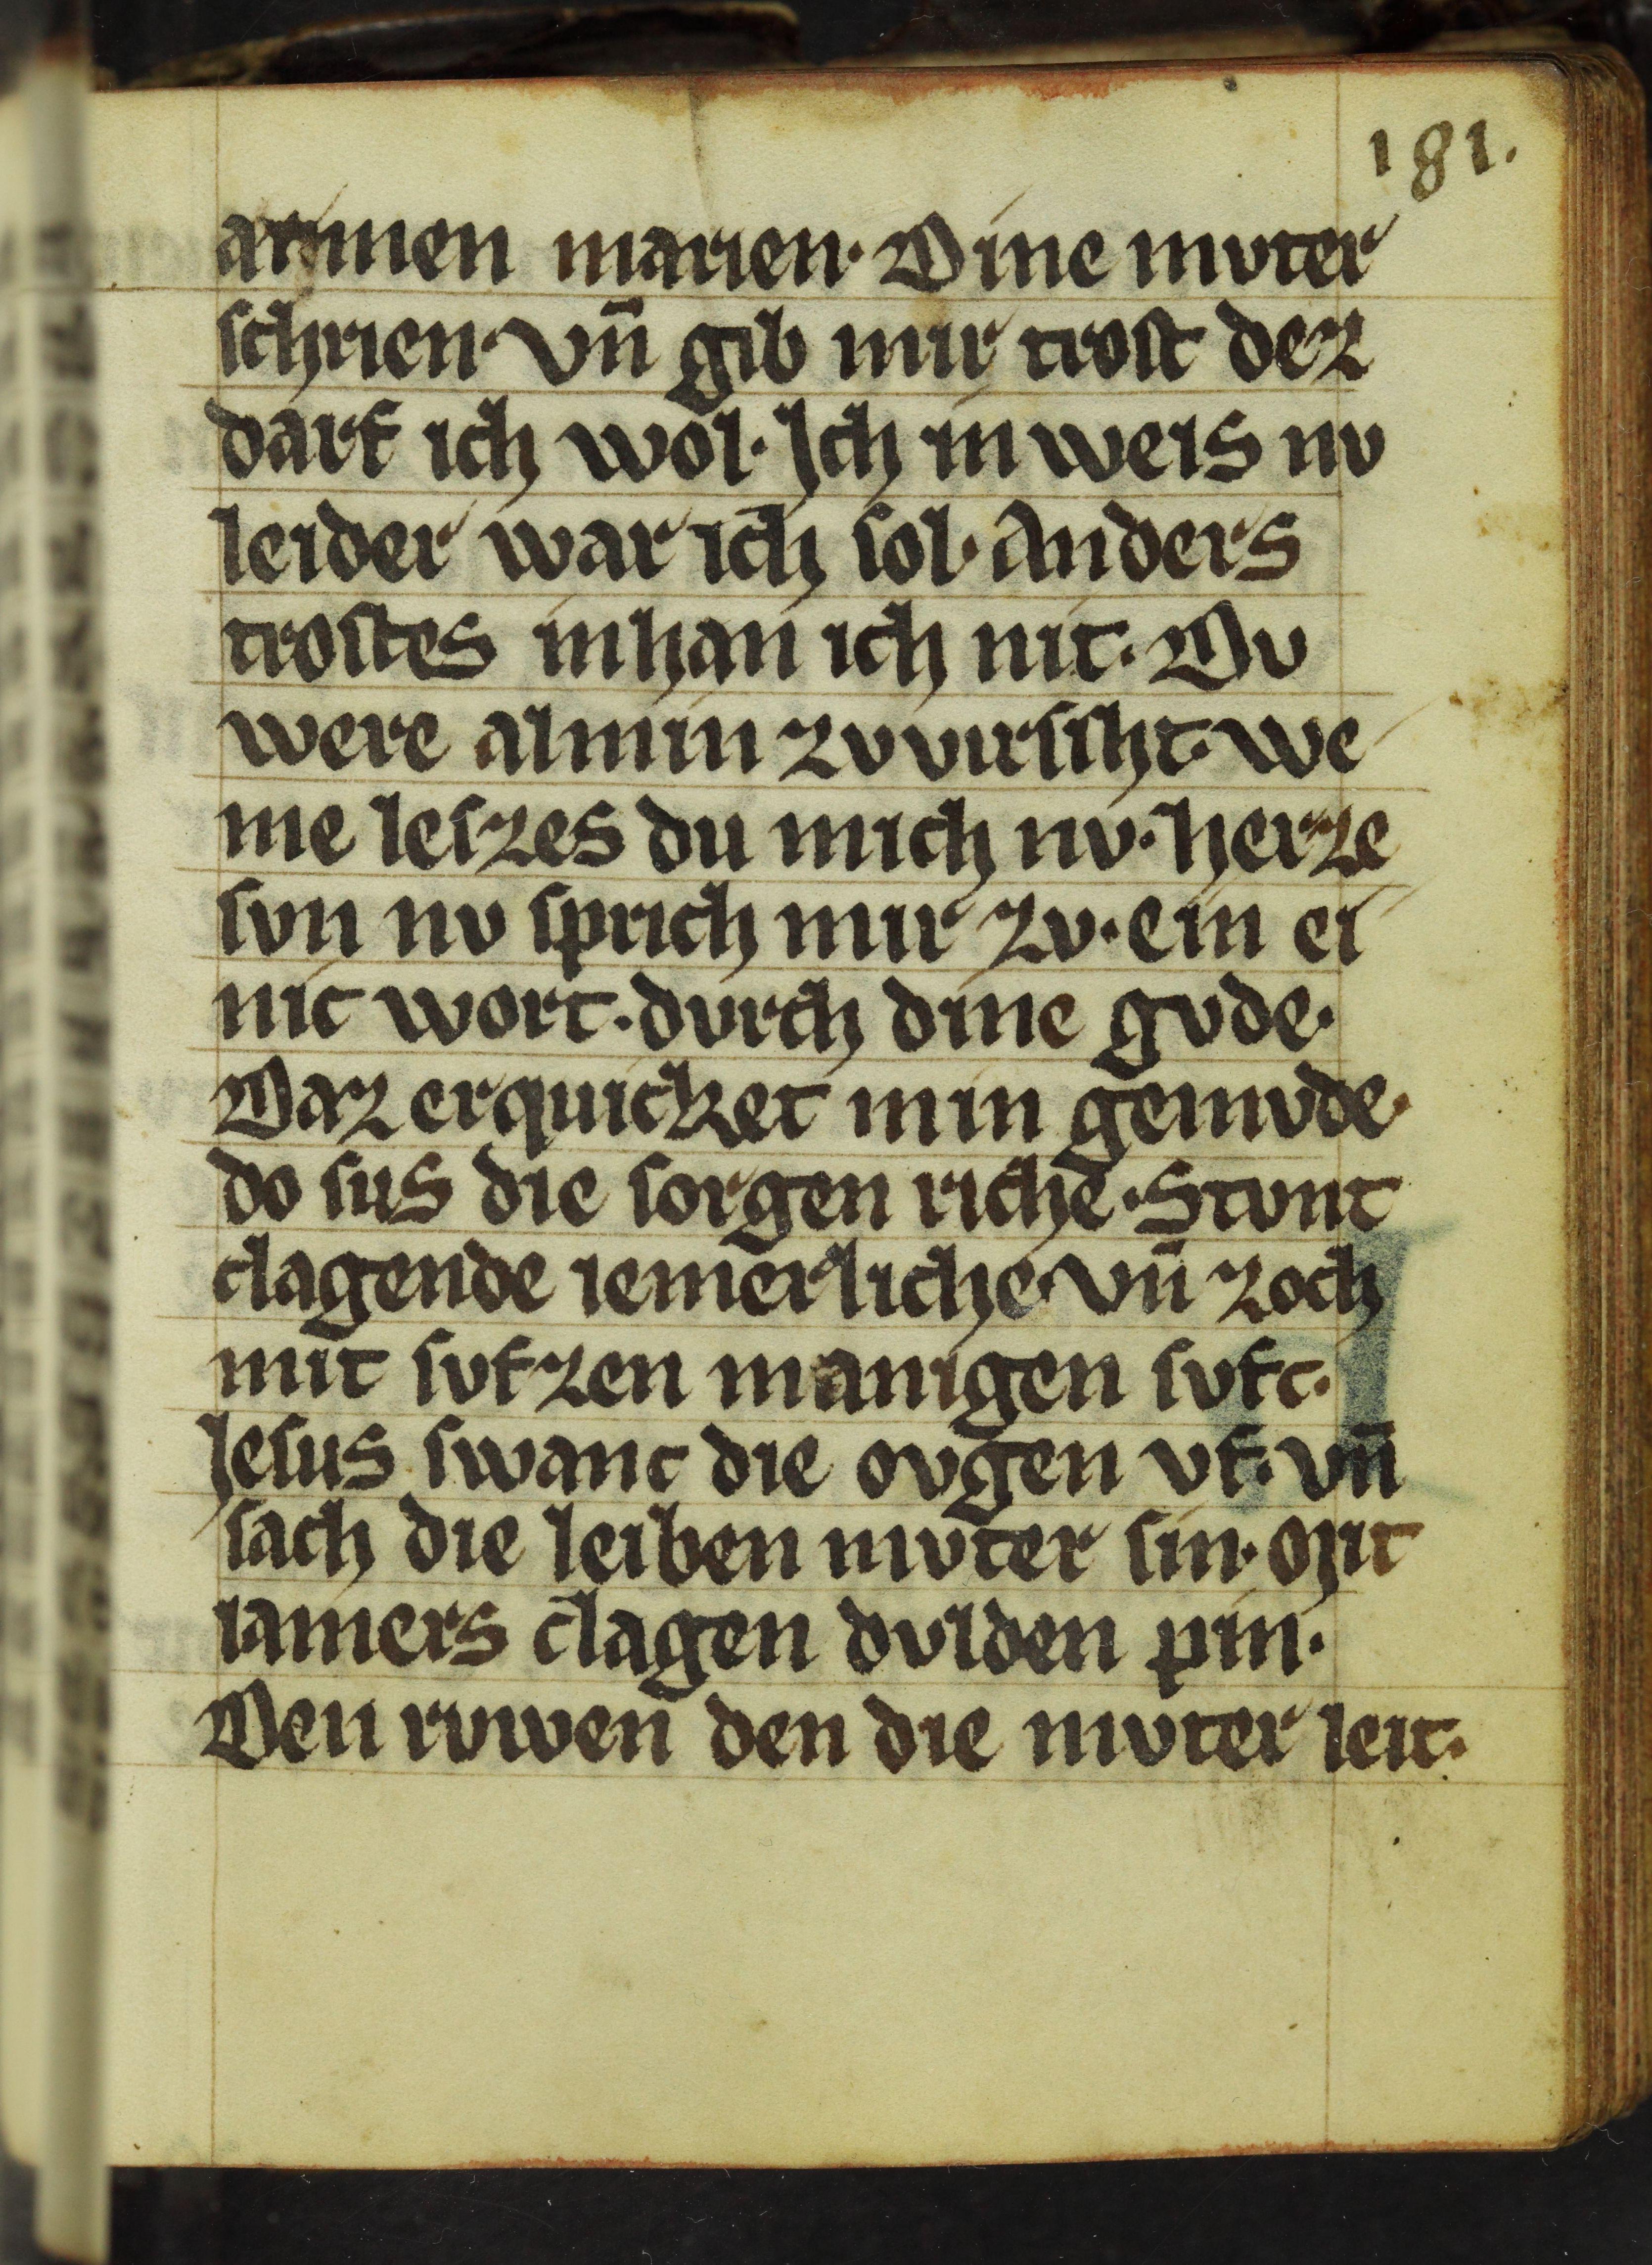 181.
armen marien· Dine mvter
schrien· vn̄ gib mir trost dez
darf ich wol· Ich in weis nv
leider war ich sol· Anders
trostes inhan ich nit· Dv
were almin zvvirsiht· we
me leszes du mich nv· herze
svn nv sprich mir zv· ein ei
nic wort· dvrch dine gvde·
Daz erquicket min gemvde·
do sus die sorgen riche· Stvnt
clagende iemerliche· vn̄ zoch
mit svfzen manigen svfc·
Jesus swanc die ovgen vf· vn̄
sach die leiben mvter sin· Mit
iamers clagen dvlden pin·
Den rvwen den die mvter leit·